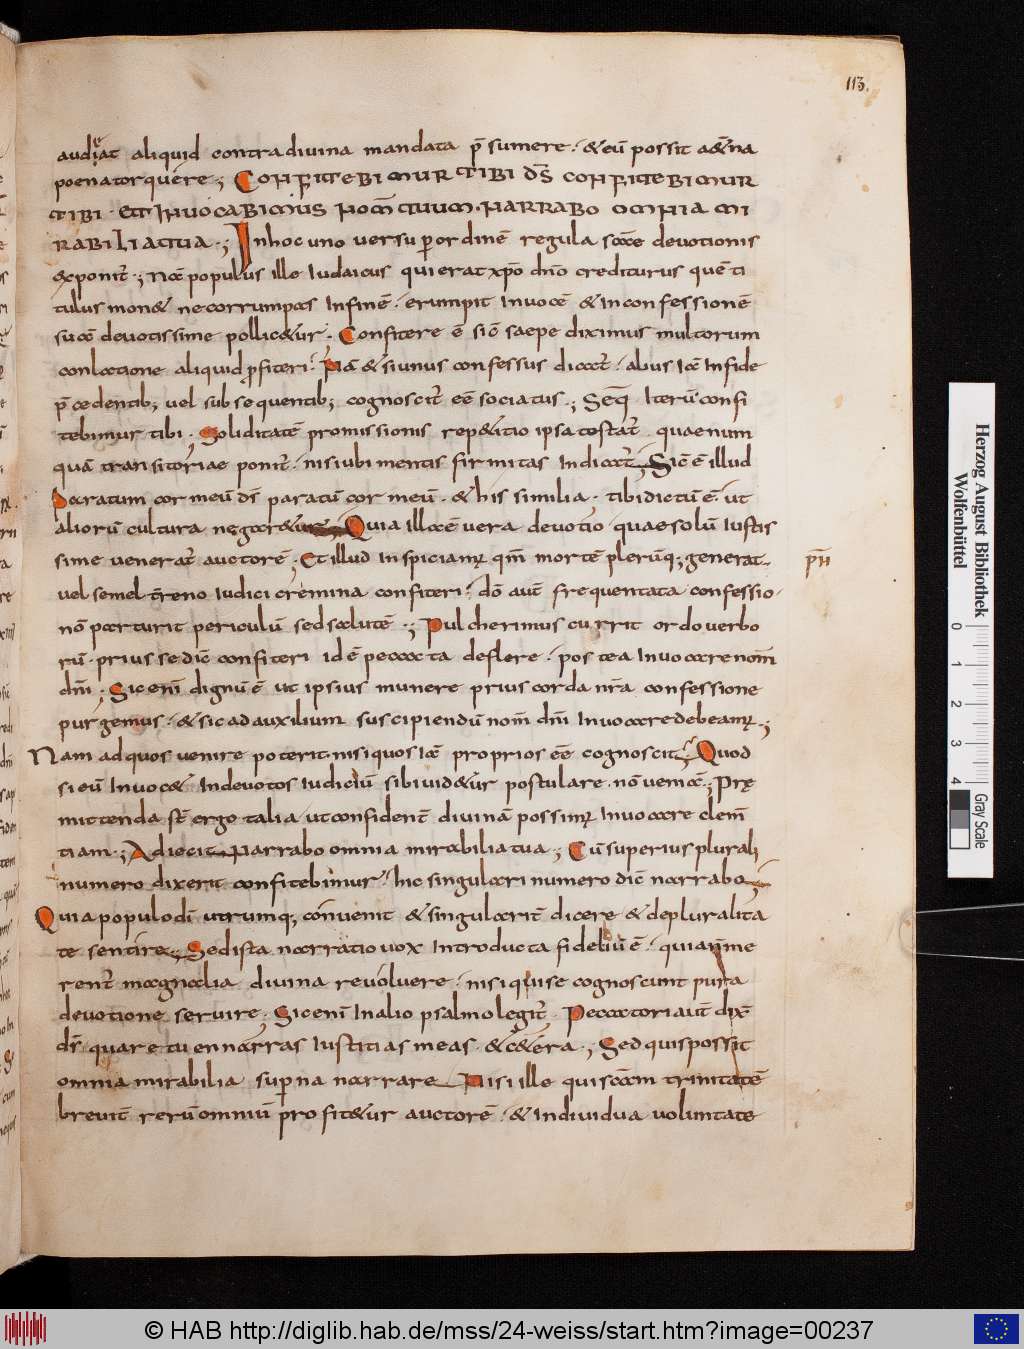 113.
audiat aliquid contra divina mandata p̄sumere · & eū possit a&̄na
poena torquere ; CONFITEBIMUR TIBI DS̄ CONFITEBIMUR
TIBI · ET INVOCABIMUS NOM̄ TUUM · NARRABO OMNIA MI
RABILIA TUA · ; In hoc uno versu p ordinē regula sc̄ae devotionis
exponit̄ · ; Nā populus ille Iudaicus qui erat xp̄o dn̄o crediturus quē ti
tulus mon& ne corrumpas In finē · erumpit In vocē & In confessionē
suā devotissime pollic&ur · Confitere ē sic̄ saepe diximus multorum
conlatione aliquid p̄fiteri · Nā & si unus confessus dicat̄ · alius Iā In fide
p̄cedentib; vel subsequentib; cognoscit̄ eē sociatus · ; Seq̄ Iterū confi
tebimur tibi · Soliditatē promissionis rep&itio ipsa testat̄ quae num
quā transitoriae ponit̄ · nisi ubi mentis firmitas Indicat̄ Sic̄ ē illud
Paratum cor meū ds̄ paratū cor meū · & his similia · tibi dictū ē · ut
aliorū cultura negar&ur Quia illa ē vera devotio quae solū Iustis
sime venerat̄ auctorē ; Et illud Inspiciam; qm̄ mortē plerūq; generat
vel semel t̄reno Iudici crimina confiteri · dō aut̄ frequentata confessio
nō parturit periculū sed salutē · ; Pulcherimus currit ordo verbo
rū · prius se dic̄ confiteri id ē peccata deflere · postea Invocare nom̄
dnī ; Sic enī dignū ē ut ipsius munere prius corda nr̄a confessione
purgemus · & sic ad auxilium suscipiendū nom̄ dnī Invocare debeam; · ;
Nam ad quos venire poterit nisi quos Iā proprios eē cognoscit Quod
si eū Invoc& Indevotos Iudiciū sibi vid&ur postulare · nō veniā · ; Pre
mittenda st̄ ergo talia ut confident̄ divinā possim; Invocare clem̄
tiam · ; Adiecit Narrabo omnia mirabilia tua ; Cū superius plurali
numero dixerit confitebimur · hic singulari numero dic̄ narrabo
Quia populo dī utrumq; convenit & singularit̄ dicere & de pluralita
te sentire Sed ista narratio vox Introducta fideliū ē · quia n̄me
rent̄ magnalia divina revolvere · nisi qui se cognoscunt pura
devotione servire · Sic enī In alio psalmo legit̄ · Peccatori aut̄ dix̄
dr̄ quare tu enarras Iustitias meas · & c&̄era · ; Sed quis possit
omnia mirabilia sup̄na narrare Nisi ille qui scām trinitatē
brevit̄ rerū omniū profit&ur auctorē · & Individua voluntate
Herzog August Bibliothek
Wolfenbüttel
0 1 2 3 4
Gray Scale
© HAB http://diglib.hab.de/mss/24-weiss/start.htm?image=00237